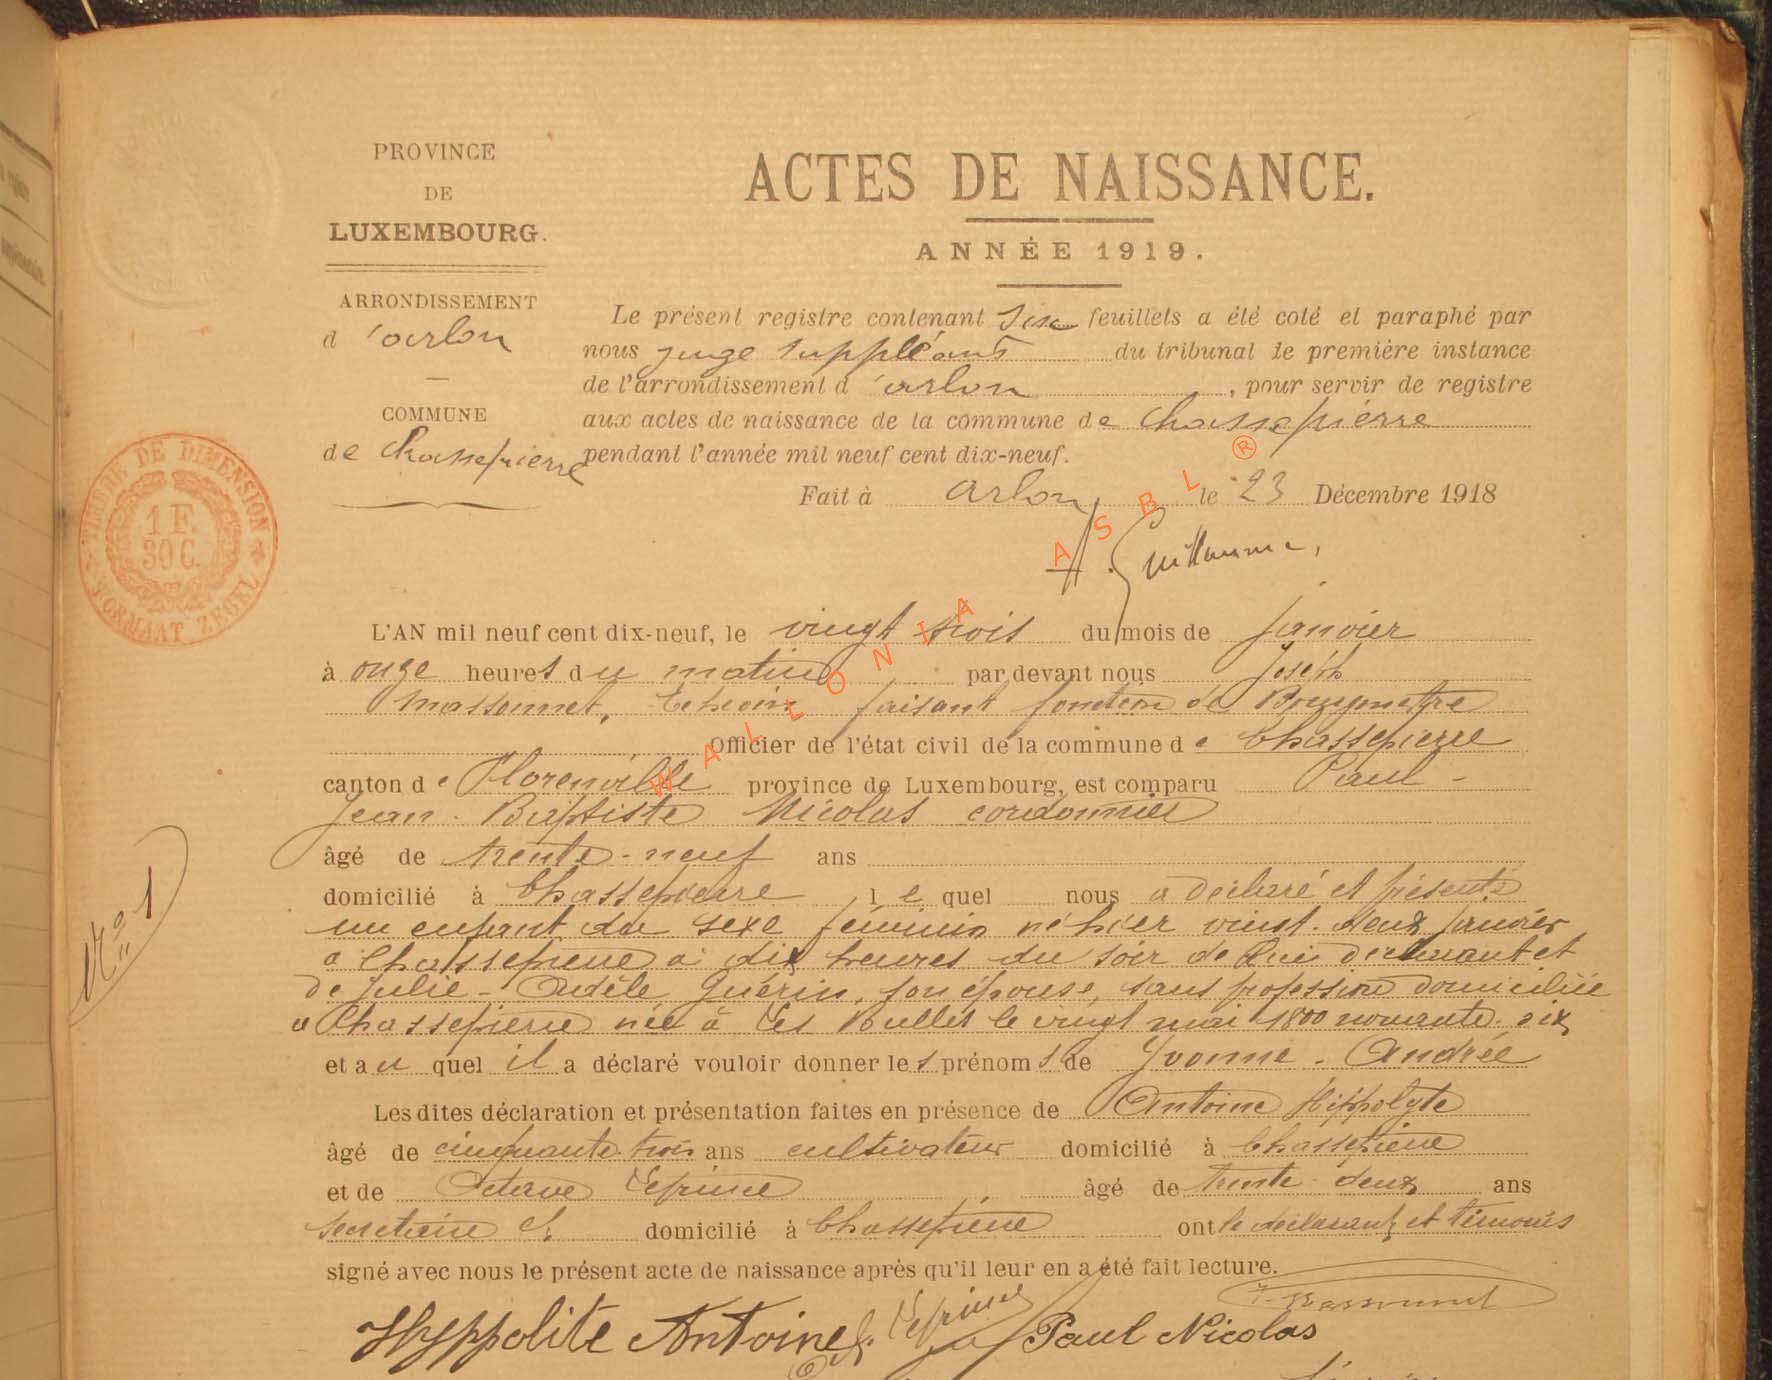 PROVINCE
DE
LUXEMBOURG.
ARRONDISSEMENT
d'arlon
COMMUNE
de Chassepierre
TIMBRE DE DIMENSION
1 F.
30 C.
FORMAAT ZEGEL
ACTES DE NAISSANCE.
ANNÉE 1919.
Le présent registre contenant six feuillets a été coté et paraphé par
nous juge suppléant du tribunal de première instance
de l'arrondissement d'arlon, pour servir de registre
aux actes de naissance de la commune de Chassepierre
pendant l'année mil neuf cent dix-neuf.
Fait à Arlon, le 23 Décembre 1918
Guillaume,
WALLONIA ASBL ®
L'AN mil neuf cent dix-neuf, le vingt trois du mois de janvier
à onze heures du matin par devant nous Joseph
Massonnet, Echevin faisant fonction de Bourgmestre
Officier de l'état civil de la commune de Chassepierre
canton de Florenville province de Luxembourg, est comparu Paul -
Jean - Baptiste Nicolas cordonnier
âgé de trente-neuf ans
domicilié à Chassepierre lequel nous a déclaré et présenté
un enfant du sexe féminin né hier vingt-deux janvier
à Chassepierre à dix heures du soir de lui déclarant et
de Julie - Adèle Guérin, son épouse, sans profession domiciliée
à Chassepierre née à Les Bulles le vingt mai 1800 nonante-six
et auquel il a déclaré vouloir donner les prénoms de Yvonne - Andrée
N° 1
Les dites déclaration et présentation faites en présence de Antoine Hippolyte
âgé de cinquante-trois ans cultivateur domicilié à Chassepierre
et de Octave Lefrine âgé de trente-deux ans
secrétaire domicilié à Chassepierre ont le déclarant et témoins
signé avec nous le présent acte de naissance après qu'il leur en a été fait lecture.
J. Massonnet
Hyppolite Antoine Paul Nicolas